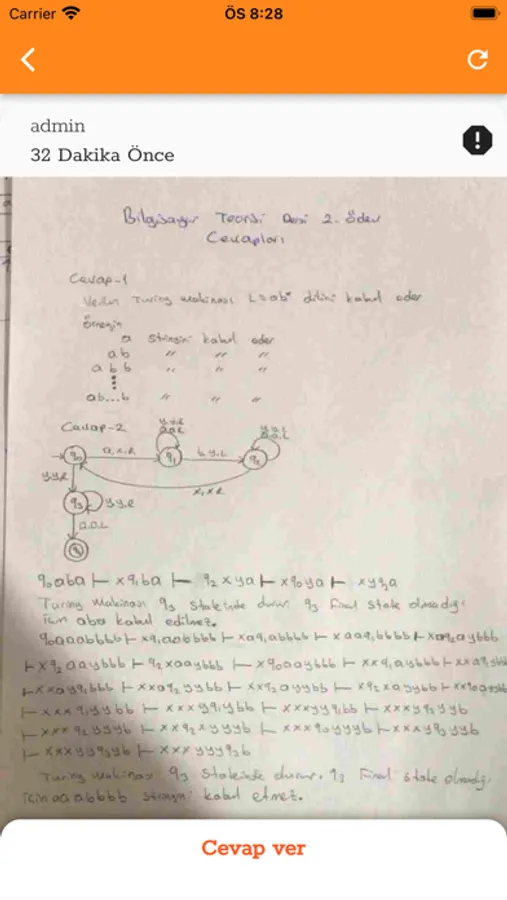 Carrier
ÖS 8:28
admin
32 Dakika Önce
Bilgisayar Teorisi Dersi 2. Ödev
Cevapları
Cevap-1
Verilen Turing Makinası L=ab* dilini kabul eder
Örneğin
a stringini kabul eder
ab " " "
abb " " "
ab...b " " "
Cevap-2
q0 a,x,R q1 b,y,L q2
y,y,R x,x,R
q3 y,y,R
q0aba ⊢ xq1ba ⊢ q2xya ⊢ xq0ya ⊢ xyq3a
Turing Makinası q3 stateinde durur. q3 Final state olmadığı
için aba kabul edilmez.
q0aaabbbb ⊢ xq1aabbbb ⊢ xaq1abbbb ⊢ xaaq1bbbb ⊢ xaq2aybbb
⊢ xq2aaybbb ⊢ q2xaaybbb ⊢ xq0aaybbb ⊢ xxq1aybbb ⊢
⊢ xxayq1bbb ⊢ xxaq2yybb ⊢ xxq2ayybb ⊢ xq2xayybb ⊢
⊢ xxxq1yybb ⊢ xxxyq1ybb ⊢ xxxyyq1bb ⊢ xxxyq2yyb
⊢ xxxq2yyyb ⊢ xxq2xyyyb ⊢ xxxq0yyyb ⊢ xxxyq3yyb
⊢ xxxyyq3yb ⊢ xxxyyyq3b
Turing Makinası q3 stateinde durur. q3 Final state olmadığı
için aaabbbb stringini kabul etmez.
Cevap ver